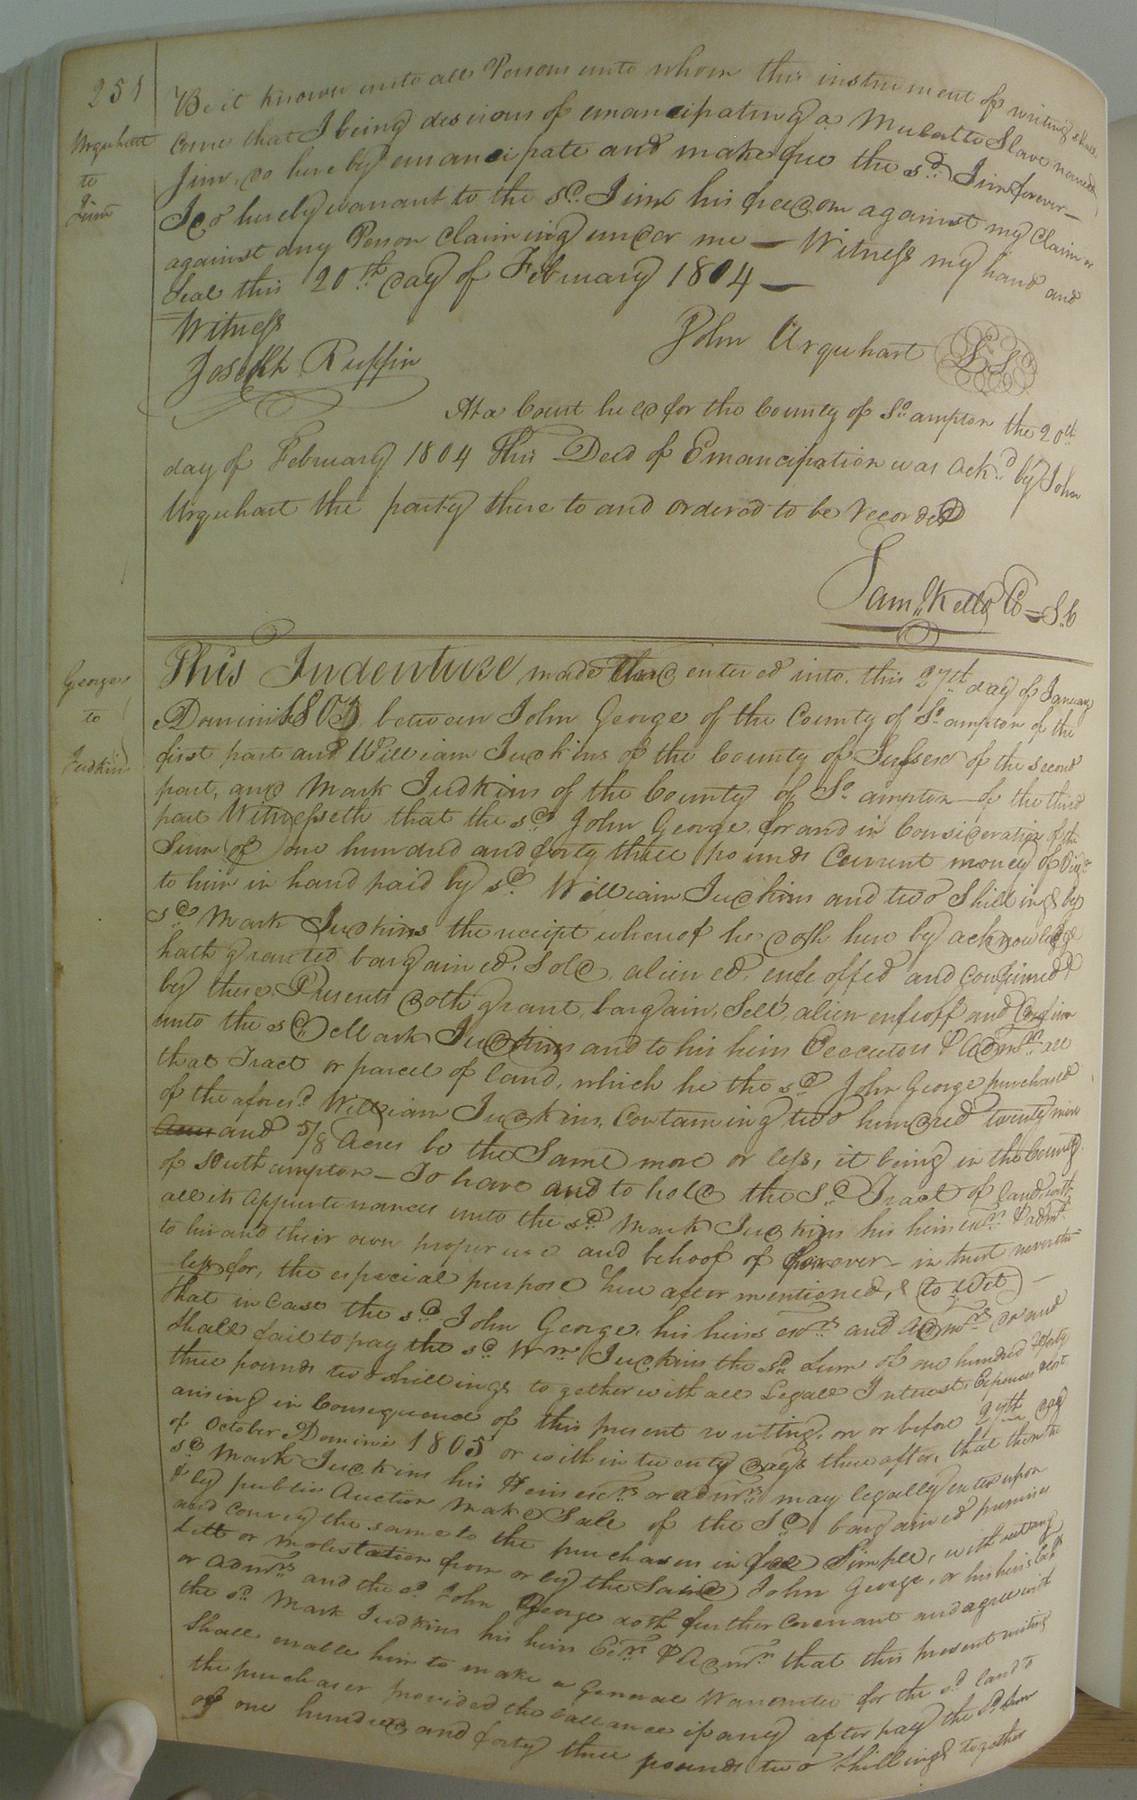 251
Be it known unto all Persons unto whom this instrument of writing shall
Urquhart
to
Jim
Come that I being desirous of emancipating a Mulatto Slave named
Jim, do hereby emancipate and make free the sd. Jim forever—
I do hereby warrant to the sd. Jim his freedom against my Claim or
against any Person Claiming under me — Witness my hand and
Seal this 20th day of February 1804 —
Witness
John Urquhart LS
Joseph Ruffin
At a Court held for the County of So. ampton the 20th
day of February 1804 This Deed of Emancipation was ackd. by John
Urquhart the party thereto and ordered to be recorded
Saml. Kello C S.C
George
to
Judkins
This Indenture made and entered into this 27th day of January
Domini 1803 between John George of the County of So. ampton of the
first part and William Judkins of the County of Sussex of the second
part, and Mark Judkins of the County of So. ampton — of the third
part Witnesseth that the sd. John George for and in Consideration of the
Sum of one hundred and forty three pounds Current money of Virga.
to him in hand paid by sd. William Judkins and two Shillings by
sd. Mark Judkins the receipt whereof he doth hereby acknowledge
hath granted bargained, Sold, aliened, enfeoffed and Confirmed &
by these Presents doth grant, bargain, Sell, alien enfeoff and Confirm
unto the sd. Mark Judkins and to his heirs Executors & Admrs. all
that Tract or parcel of land, which he the sd. John George purchased
of the aforesd. William Judkins, Containing two hundred twenty nine
Acres and 5/8 Acres be the Same more or less, it being in the County
of Southampton — To have and to hold the Sd. Tract of land with
all its appurtenances unto the sd. Mark Judkins his heirs exrs. & admrs.
to his and their own proper use and behoof of forever — in trust neverthe=
less for, the especial purpose here after mentioned, & to Wit
that in Case the sd. John George, his heirs exrs. and admrs. do and
Shall fail to pay the sd. Wm. Judkins the sd. Sum of one hundred & forty
three pounds two shillings together with all Legal Interest, Expenses &
arising in Consequence of this present writing, on or before 27th day
of October Domini 1805 or within twenty days there after, that then the
sd. Mark Judkins his Heirs exrs. or admrs. may legally enter upon
& by public Auction make Sale of the Sd. bargained premises
and convey the same to the purchaser in fee Simple, without any
Lett or molestation from or by the Said John George, or his heirs
or admrs. and the sd. John George doth further Covenant and agree with
the sd. Mark Judkins his heirs Exrs. & Admrs. that this present writing
Shall enable him to make a General Warrantee for the sd. land to
the purchaser provided the ballance if any after pay the sd. Sum
of one hundred and forty three pounds two Shillings together